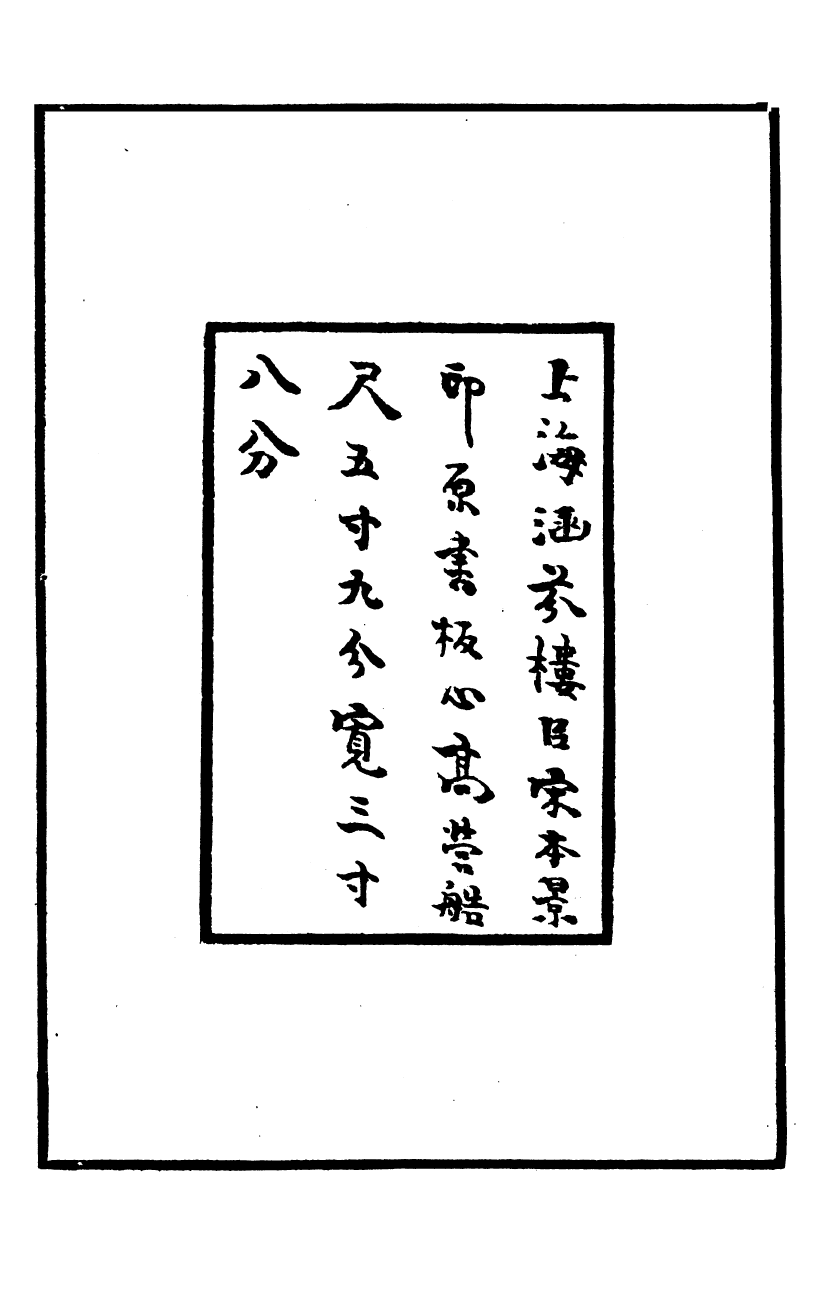 上海涵芬樓㠯宋本景
印原書板心高營艁
尺五寸九分寬三寸
八分